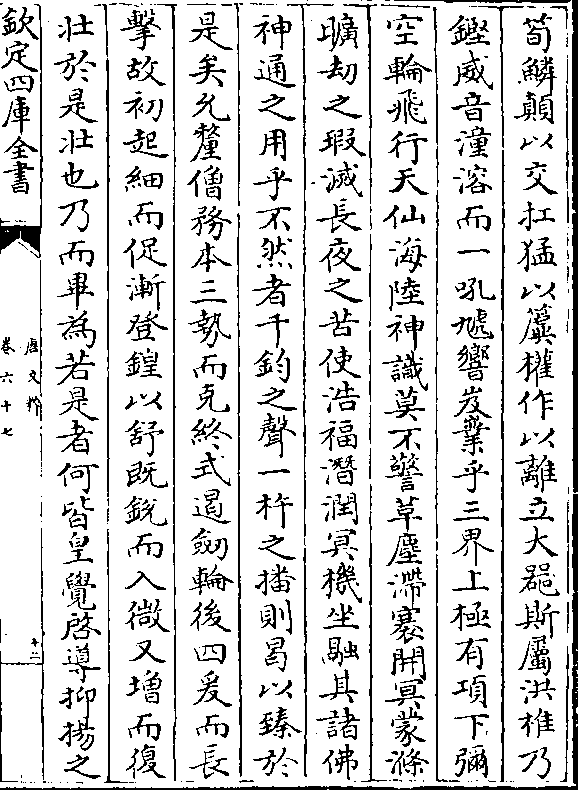 筍鱗顛以交扛猛以簴權作以離立大嚭斯屬洪椎乃
鏗威音潼溶而一吼虓響岌業乎三界上極有項下彌
空輪飛行天仙海陸神識莫不警草塵滯褰開冥蒙滌
曠劫之瑕滅長夜之苦使浩福潛潤冥機坐融其諸佛
神通之用乎不然者千鈞之聲一杵之播則曷以臻於
是矣允釐僧務本三執而克終式遏劒輪後四爰而長
擊故初起細而促漸登鍠以舒既銳而入微又增而復
壯於是壯也乃而畢為若是者何皆皇覺啓導抑揚之
欽定四庫全書
唐文粹
卷六十七
十二